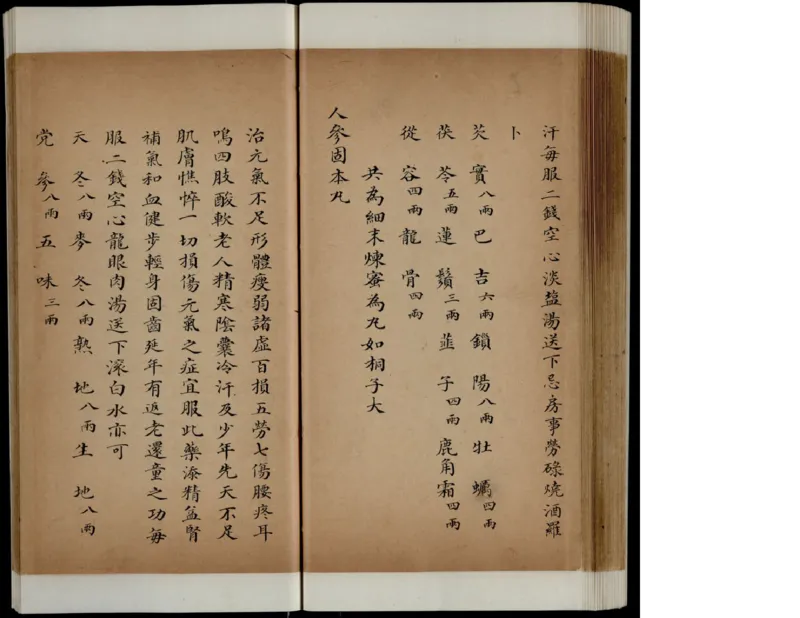 汗每服二錢空心淡盐湯送下忌房事勞碌燒酒羅
卜
芡實八兩巴吉六兩鎖陽八兩牡蠣四兩
茯苓五兩蓮鬚三兩韮子四兩鹿角霜四兩
從容四兩龍骨四兩
共為細末煉蜜為丸如桐子大
人參固本丸
治元氣不足形體瘦弱諸虛百損五勞七傷腰疼耳
鳴四肢酸軟老人精寒陰囊冷汗及少年先天不足
肌膚憔悴一切損傷元氣之症宜服此藥添精益腎
補氣和血健步輕身固齒延年有返老還童之功每
服二錢空心龍眼肉湯送下滚白水亦可
天冬八兩麥冬八兩熟地八兩生地八兩
党參八兩五味三兩